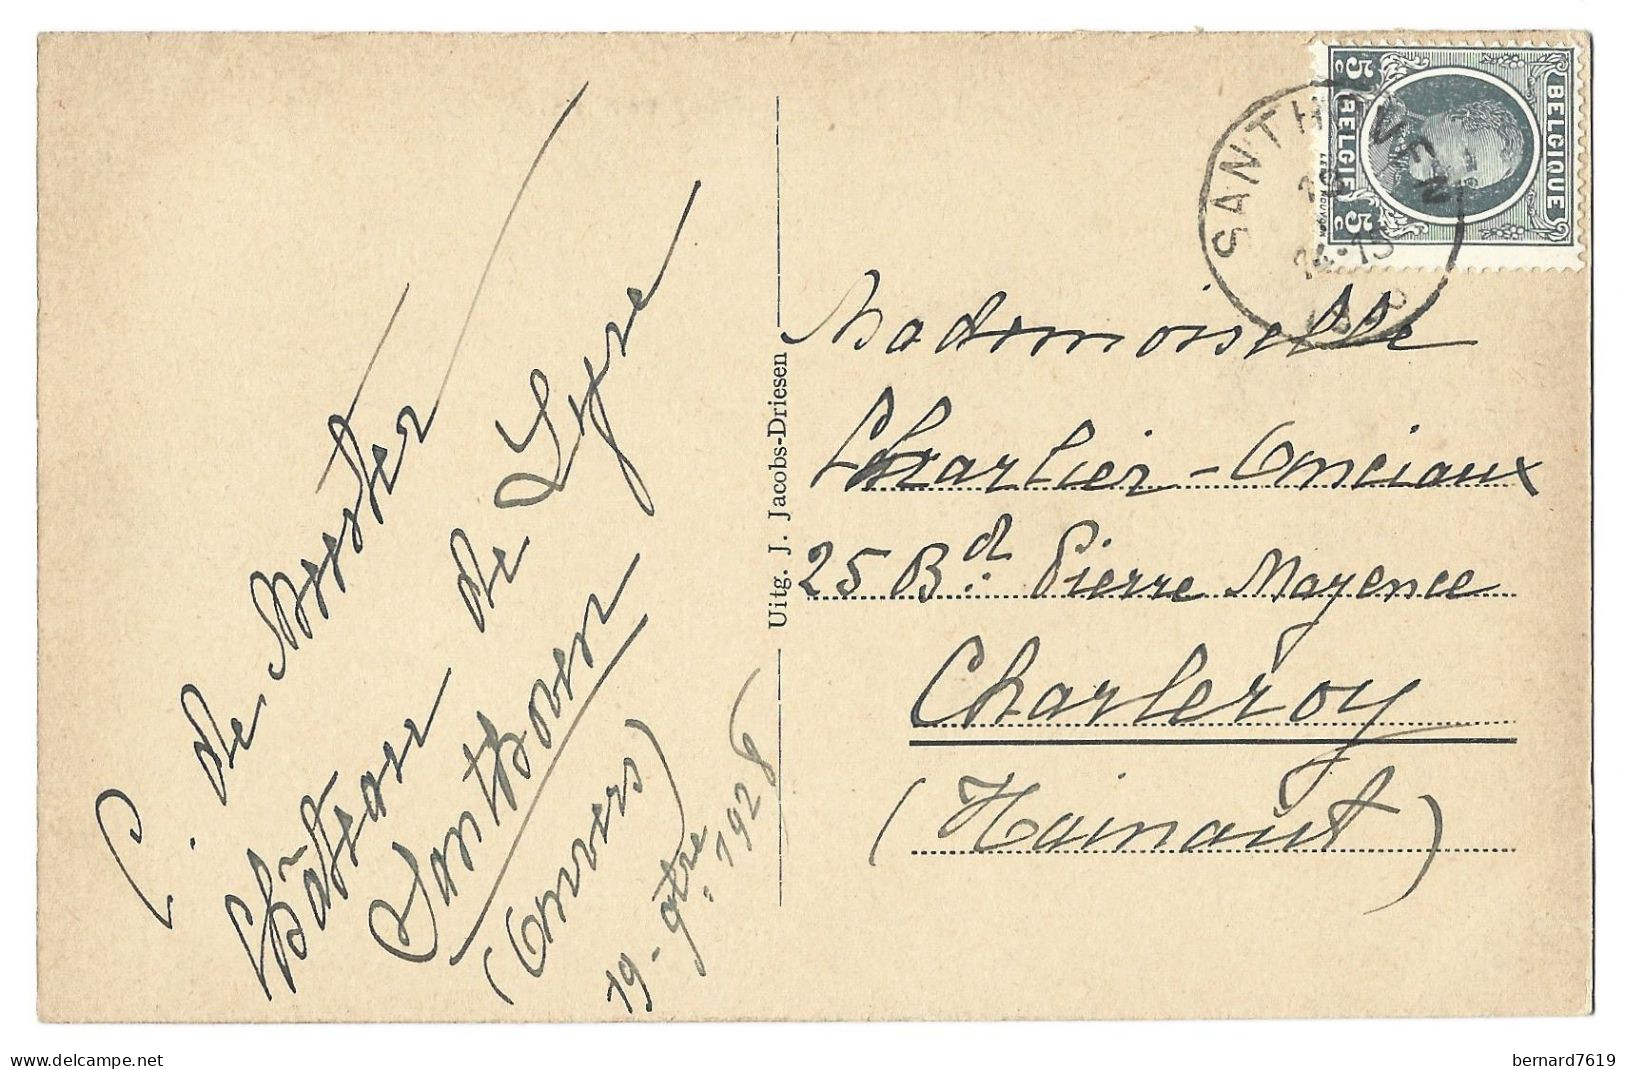 C. de Meester
Château de Lyre
Santhoven
(Anvers)
19-9bre.1928
Uitg. J. Jacobs-Driesen
BELGIQUE
5c BELGIE 5c
SANTHOVEN
14-15
Mademoiselle
Charlier-Anciaux
25 Bd. Pierre Mayence
Charleroy
(Hainaut)
bernard7619
www.delcampe.net